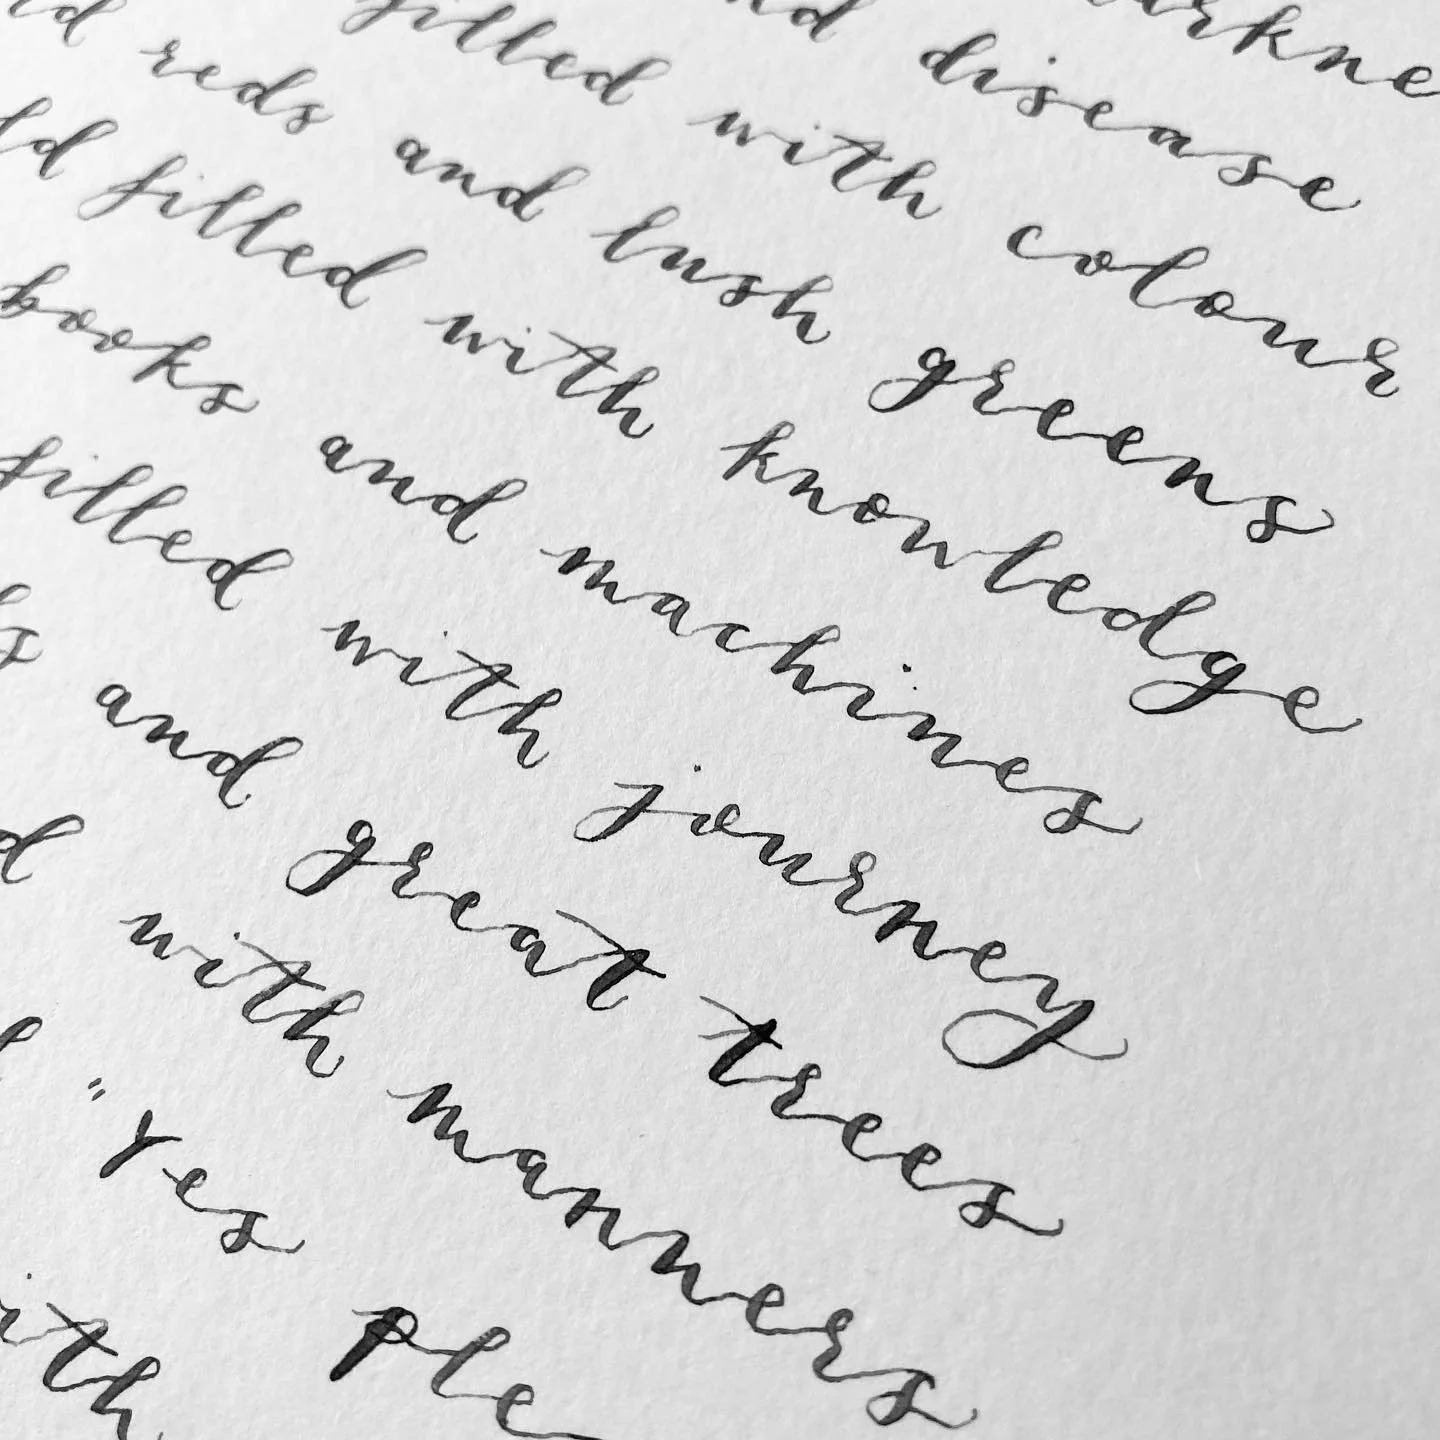 disease
filled with colour
reds and lush greens
filled with knowledge
books and machines
filled with journey
and great trees
with manners
"Yes ple
ith